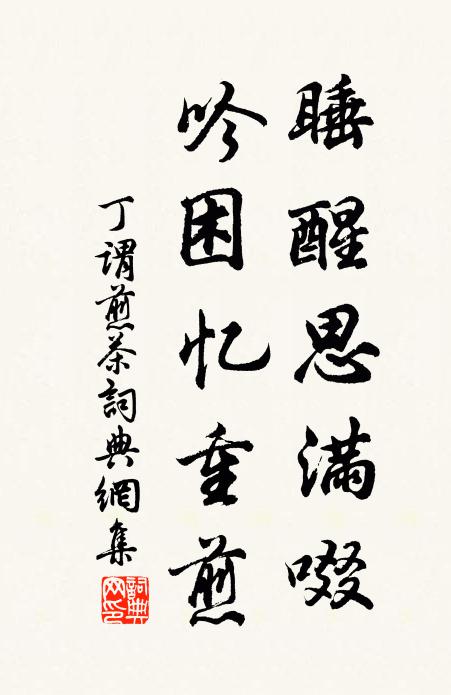 睡醒思满啜
吟困忆重煎
丁谓煎茶詞典網集
詞典网印